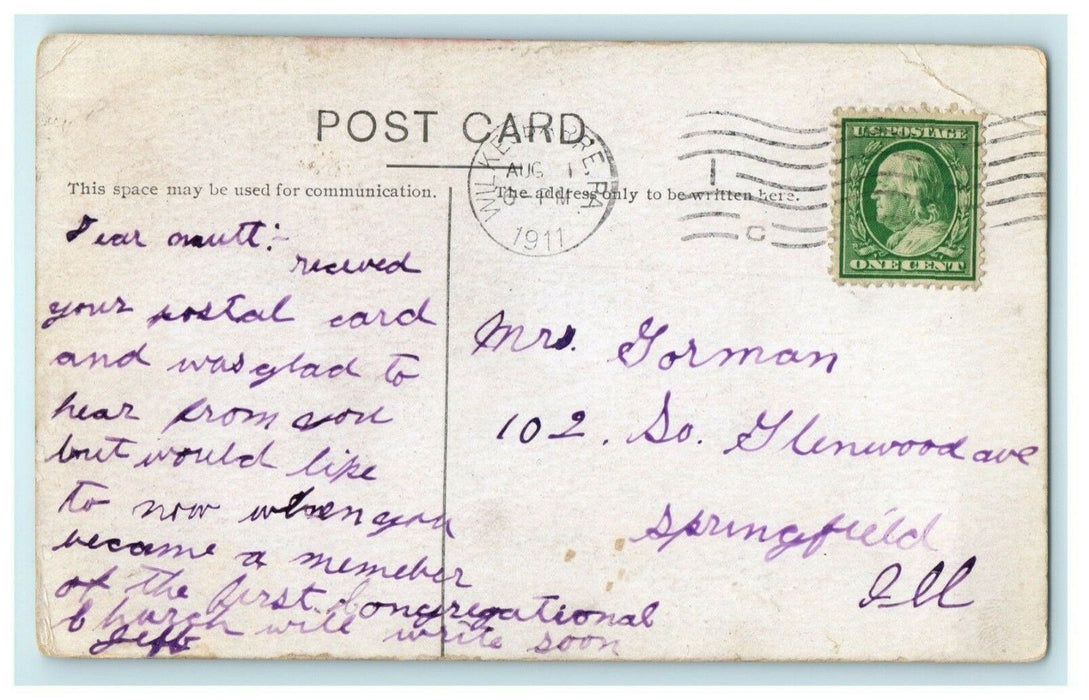 POST CARD
WILKES-BARRE, PA.
AUG 1
1911
1
C
U.S. POSTAGE
ONE CENT
This space may be used for communication.
The address only to be written here.
Dear mutt:-
recieved
your postal card
and was glad to
hear from you
but would like
to now when you
became a memeber
of the first Congregational
Church will write soon
Jeff
Mrs. Gorman
102. So. Glenwood ave
Springfield
Ill